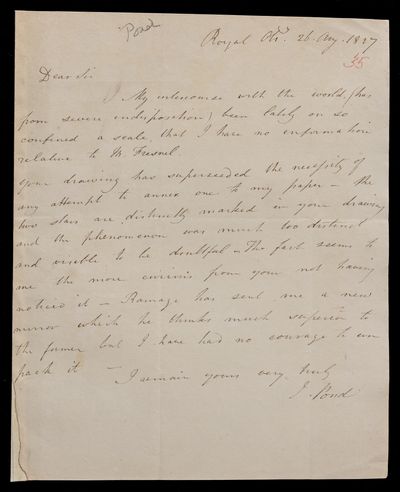 Pond
Royal Obs. 26 Aug. 1827
35
Dear Sir
My intercourse with the world (has
from severe indisposition) been lately on so
confined a scale, that I have no information
relative to Mr Fresnel.
Your drawing has superseeded the necessity of
any attempt to annex one to my paper – the
two stars are distinctly marked in your drawing
and the phenomenon was much too distinct
and visible to be doubtful – The fact seems to
me the more curious from your not having
noticed it – Ramage has sent me a new
mirror which he thinks much superior to
the former but I have had no courage to un
pack it –
I remain yours very truly
J. Pond